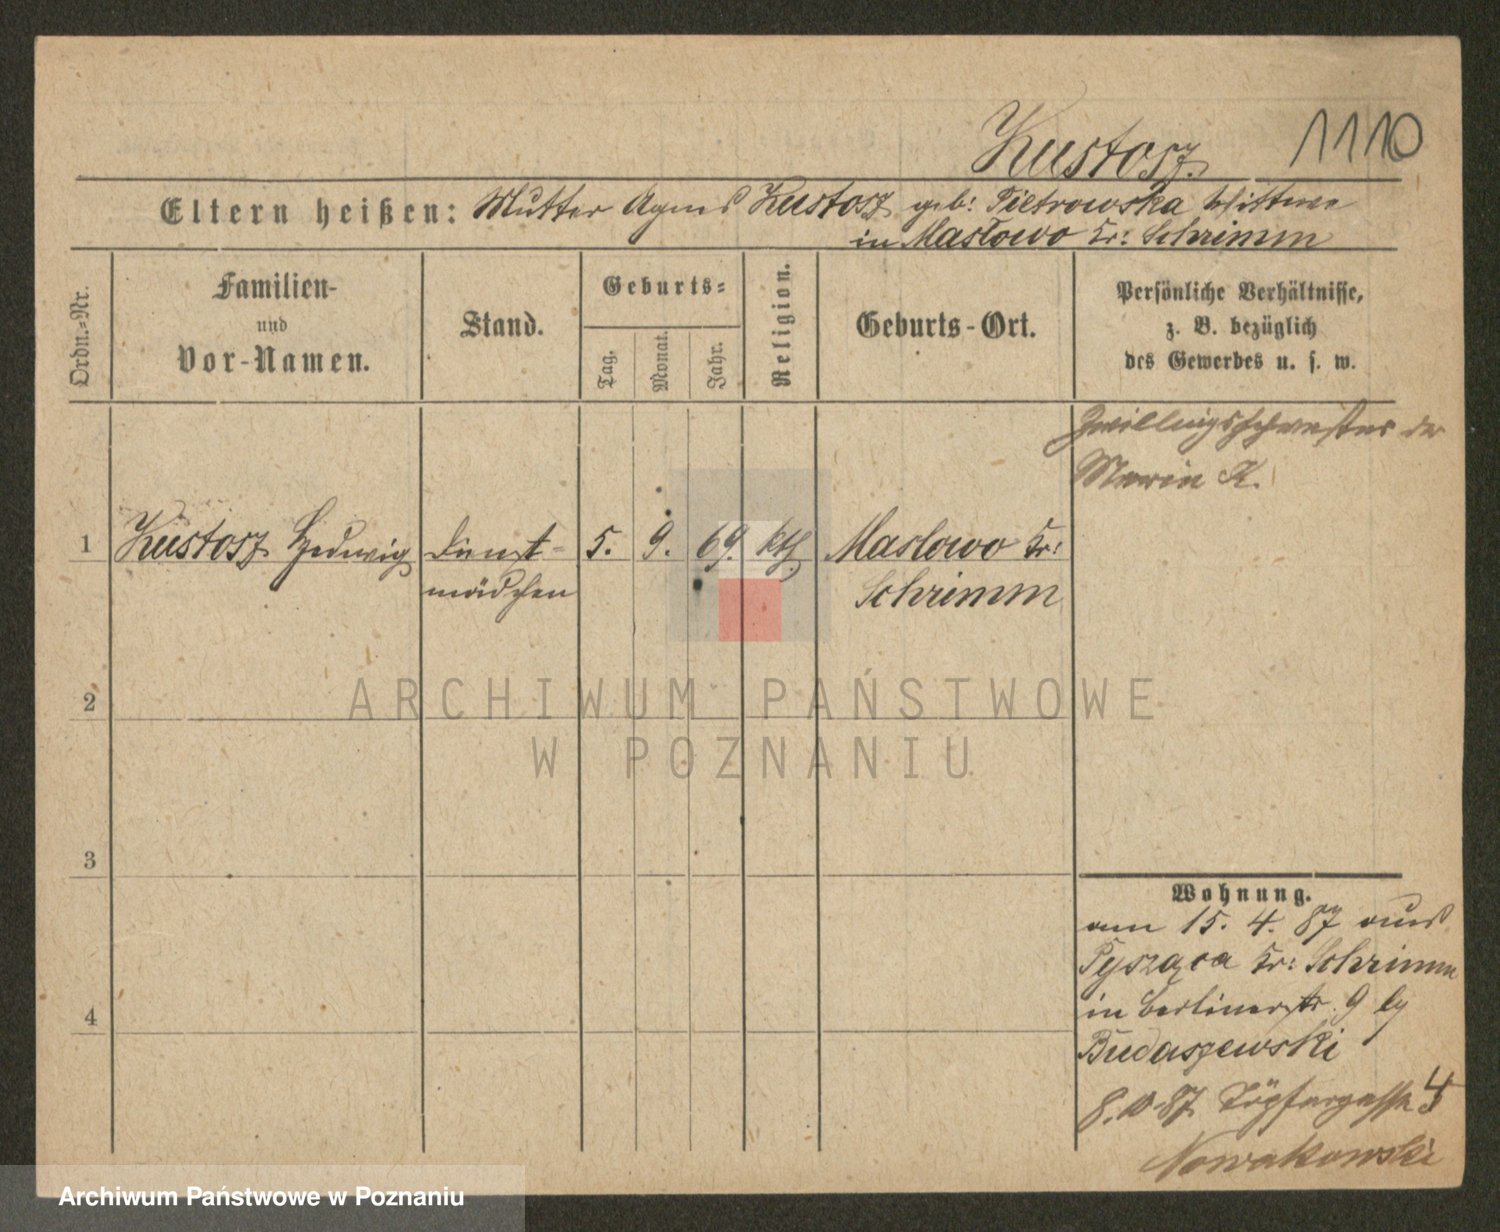 Kustosz. 1110
Eltern heißen: Mutter Agnes Kustosz geb: Pietrowska Wittwe
in Masłowo Kr: Schrimm
Ordn.-Nr.
Familien-
und
Vor-Namen.
Stand.
Geburts-
Tag.
Monat.
Jahr.
Religion.
Geburts-Ort.
Persönliche Verhältnisse,
z. B. bezüglich
des Gewerbes u. s. w.
Zwillingsschwester der
Maria K.
1 Kustosz Hedwig Dienst- 5. 9. 69. kth. Maslowo Kr:
mädchen Schrimm
2
3
4
Wohnung.
am 15. 4. 87 aus
Pysząca Kr: Schrimm
in Berlinerstr. 9 bei
Budaszewski
8.10.87 Töpfergasse
Nowakowski
ARCHIWUM PAŃSTWOWE
W POZNANIU
Archiwum Państwowe w Poznaniu